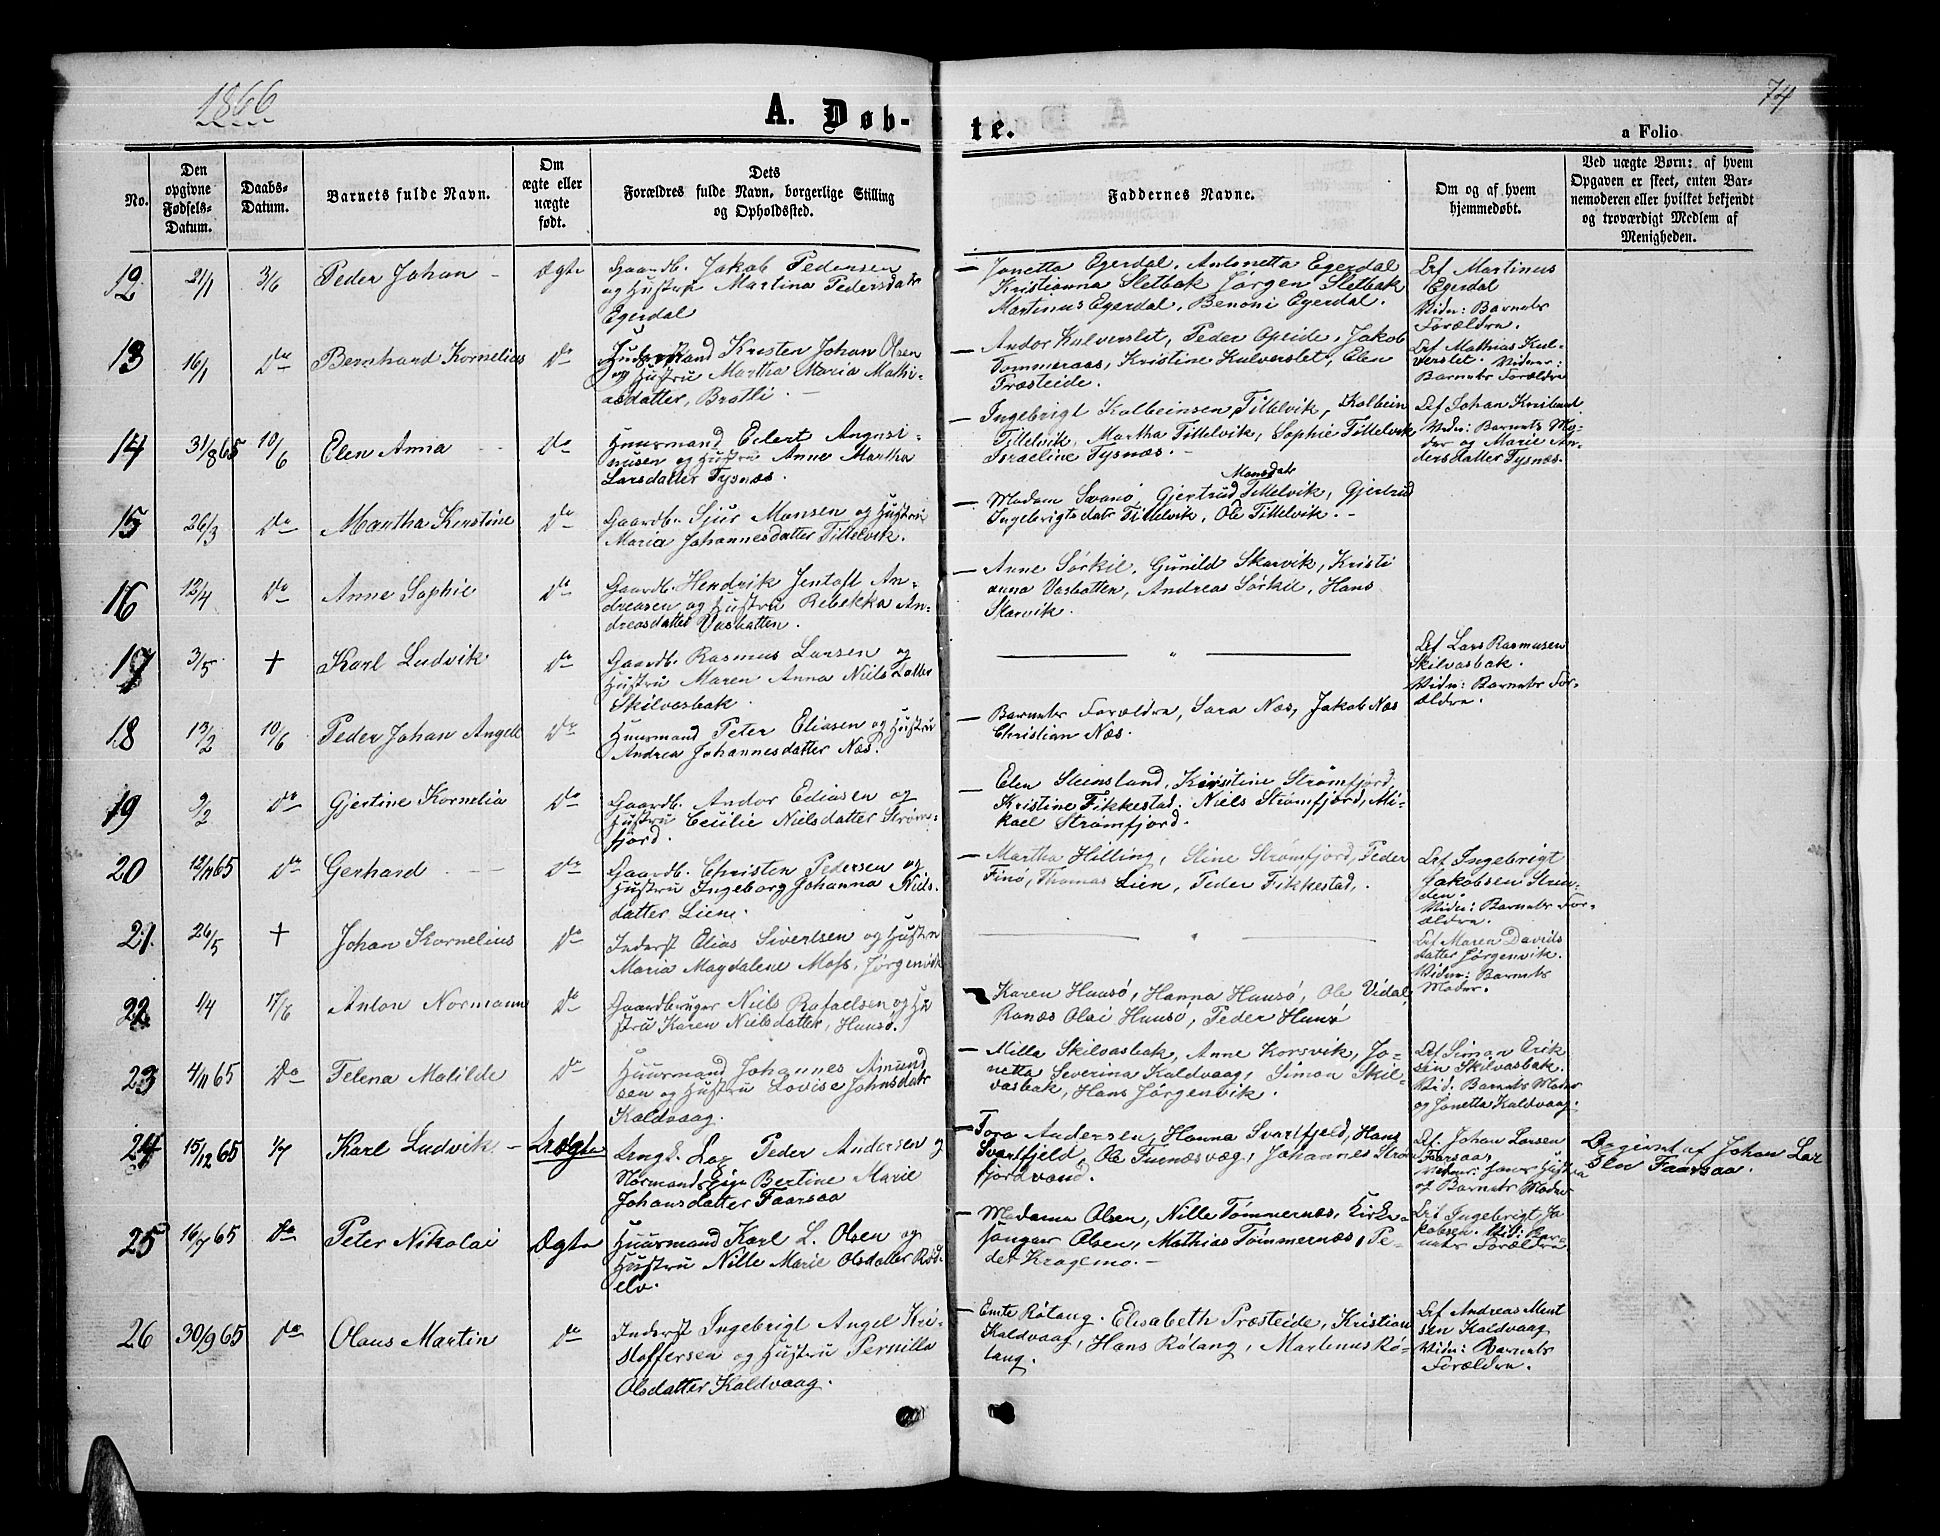 1866
74
A. Døb-
te.
a Folio
No.
Den opgivne Fødsels-Datum.
Daabs-Datum.
Barnets fulde Navn.
Om ægte eller uægte født.
Dets Forældres fulde Navn, borgerlige Stilling og Opholdssted.
Faddernes Navne.
Om og af hvem hjemmedøbt.
Ved uægte Børn: af hvem Opgaven er skeet, enten Barnemoderen eller hvilket bekjendt og troværdigt Medlem af Menigheden.
12 21/1 3/6 Peder Johan - Ægte
Gaardb. Jakob Pedersen
og Hustru Martina Pedersdatr
Egerdal
Jonetta Egerdal, Antonetta Egerdal
Kristianna Sletbak Jørgen Sletbak
Martinus Egerdal, Benoni Egerdal.
Martinus
Egerdal
Vidn: Barnets
Forældre.
13 16/1 Do Bernhard Kornelius Do
Kristen Johan Olsen
og Hustru Martha Maria Mathi-
asdatter, Bratli. -
Andor Kulverslet, Peder Opeide, Jakob
Tømmeraas, Kristine Kulverslet, Elen
Præsteide.
Mathias Kul-
verslet. Vidner:
Barnets Forældre
14 31/8 65 10/6 Elen Anna Do
Huusmand Eilert Angusi-
nusen og Hustru Anne Martha
Larsdatter Tysnæs.
Ingebrigt Kolbeinsen Tillelvik, Kolbein
Tillelvik, Martha Tillelvik, Sophie Tillelvik
Israeline Tysnæs. -
Johan Kristian
Vidn: Barnets Mo-
der og Marie An-
dersdatter Tysnæs.
15 26/3 Do Martha Kirstine Do
Gaardb. Sjur Monsen og Hustru
Maria Johannesdatter Tillelvik.
Monsdatr
Madam Svanø, Gjertrud Tillelvik, Gjertrud
Ingebrigtsdatr Tillelvik, Ole Tillelvik. -
16 12/4 Do Anne Sophie Do
Gaardb. Hendrik Jentoft An-
dreasen og Hustru Rebekka An-
dreasdatter Vasbotten.
Anne Sørkil, Gunild Skarvik, Kristi
anna Vasbotten, Andreas Sørkil, Hans
Skarvik.
17 3/5 + Karl Ludvik Do
Gaardb. Rasmus Larsen og
Hustru Maren Anna Niels Datter
Skilvasbak.
"
Lars Rasmusen
Skilvasbak.
Vidn: Barnets For-
ældre.
18 13/2 10/6 Peder Johan Angell Do
Huusmand Peter Eliasen og Hustru
Andrea Johannesdatter Næs.
Barnets Forældre, Sara Næs, Jakob Næs
Christian Næs.
19 9/2 Do Gjertine Kornelia Do
Gaardb. Andor Ediasen og
Hustru Cecilie Nielsdatter Strøm-
fjord.
Elen Steensland, Kirstine Strømfjord,
Kristine Fikkestad, Niels Strømfjord, Mi-
kael Strømfjord.
20 12/11 65 Do Gerhard Do
Gaardb. Christen Pedersen og
Hustru Ingeborg Johanna Niels-
datter Lien.
Martha Hilling, Stine Strømfjord, Peder
Finø, Thomas Lien, Peder Fikkestad.
Ingebrigt
Jakobsen Stran-
den.
Vidn: Barnets For-
ældre.
21. 26/5 + Johan Kornelius Do
Inderst Elias Sivertsen og Hustru
Maria Magdalene Moss, Jørgenvik
"
Maren Davids
datter Jørgenvik.
Vidn: Barnets
Moder.
22 1/4 17/6 Anton Normann Do
Gaardbruger Niels Rafaelsen og Hu
stru Karen Nielsdatter, Hausø.
Karen Hausø, Hanna Hausø, Ole Vidal,
Ranæs Olai Hausø, Peder Hausø
23 4/11 65 Do Telena Matilde Do
Huusmand Johannes Amund
sen og Hustru Lovise Johnsdatr
Kaldvaag.
Milla Skilvasbak, Anne Korsvik, Jo-
netta Severina Kaldvaag, Simon Skil-
vasbak, Hans Jørgenvik.
Simon Erik
sen Skilvasbak.
Vid. Barnets Moder
og Jonetta Kaldvaag.
24 15/12 65 1/7 Karl Ludvik - Uægte
Peder Andersen og
Bertine Marie
Johansdatter Faarsaa
Tora Andersen, Hanna Svartfjeld, Hans
Svartfjeld, Ole Furnæsvæg, Johannes Strøm
fjordvand.
Johan Larsen
Faarsaa,
Vidner: Hustru
og Barnets Moder
Opgivet af Johan Lar
sen Faarsaa.
25 16/7 65 Do Peter Nikolai Ægte
Huusmand Karl L. Olsen og
Hustru Nille Marie Olsdatter Rød-
elv.
Madama Olsen, Nille Tømmernæs, Kirke-
sanger Olsen, Mathias Tømmernæs, Pe-
der Kragemo. -
Ingebrigt Ja
kobsen. Vid: Bar-
nets Forældre
26 30/9 65 Do Olaus Martin Do
Inderst Ingebrigt Angel Kri-
stoffersen og Hustru Pernilla
Olsdatter Kaldvaag.
Emte Røtang. Elisabeth Præsteide, Kristian
Kaldvaag, Hans Røtang, Martenus Rø-
tang.
Andreas Ment
sen Kaldvaag
Vidn: Barnets
Forældre.